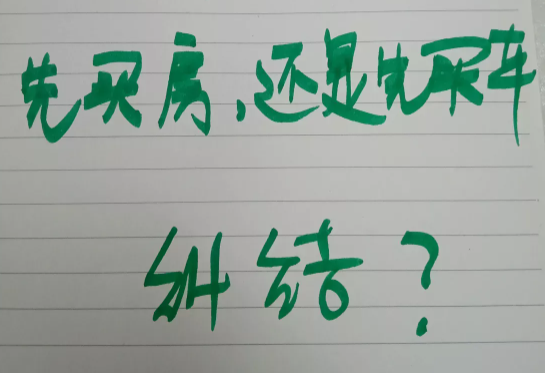 先买房,还是先买车
纠结?